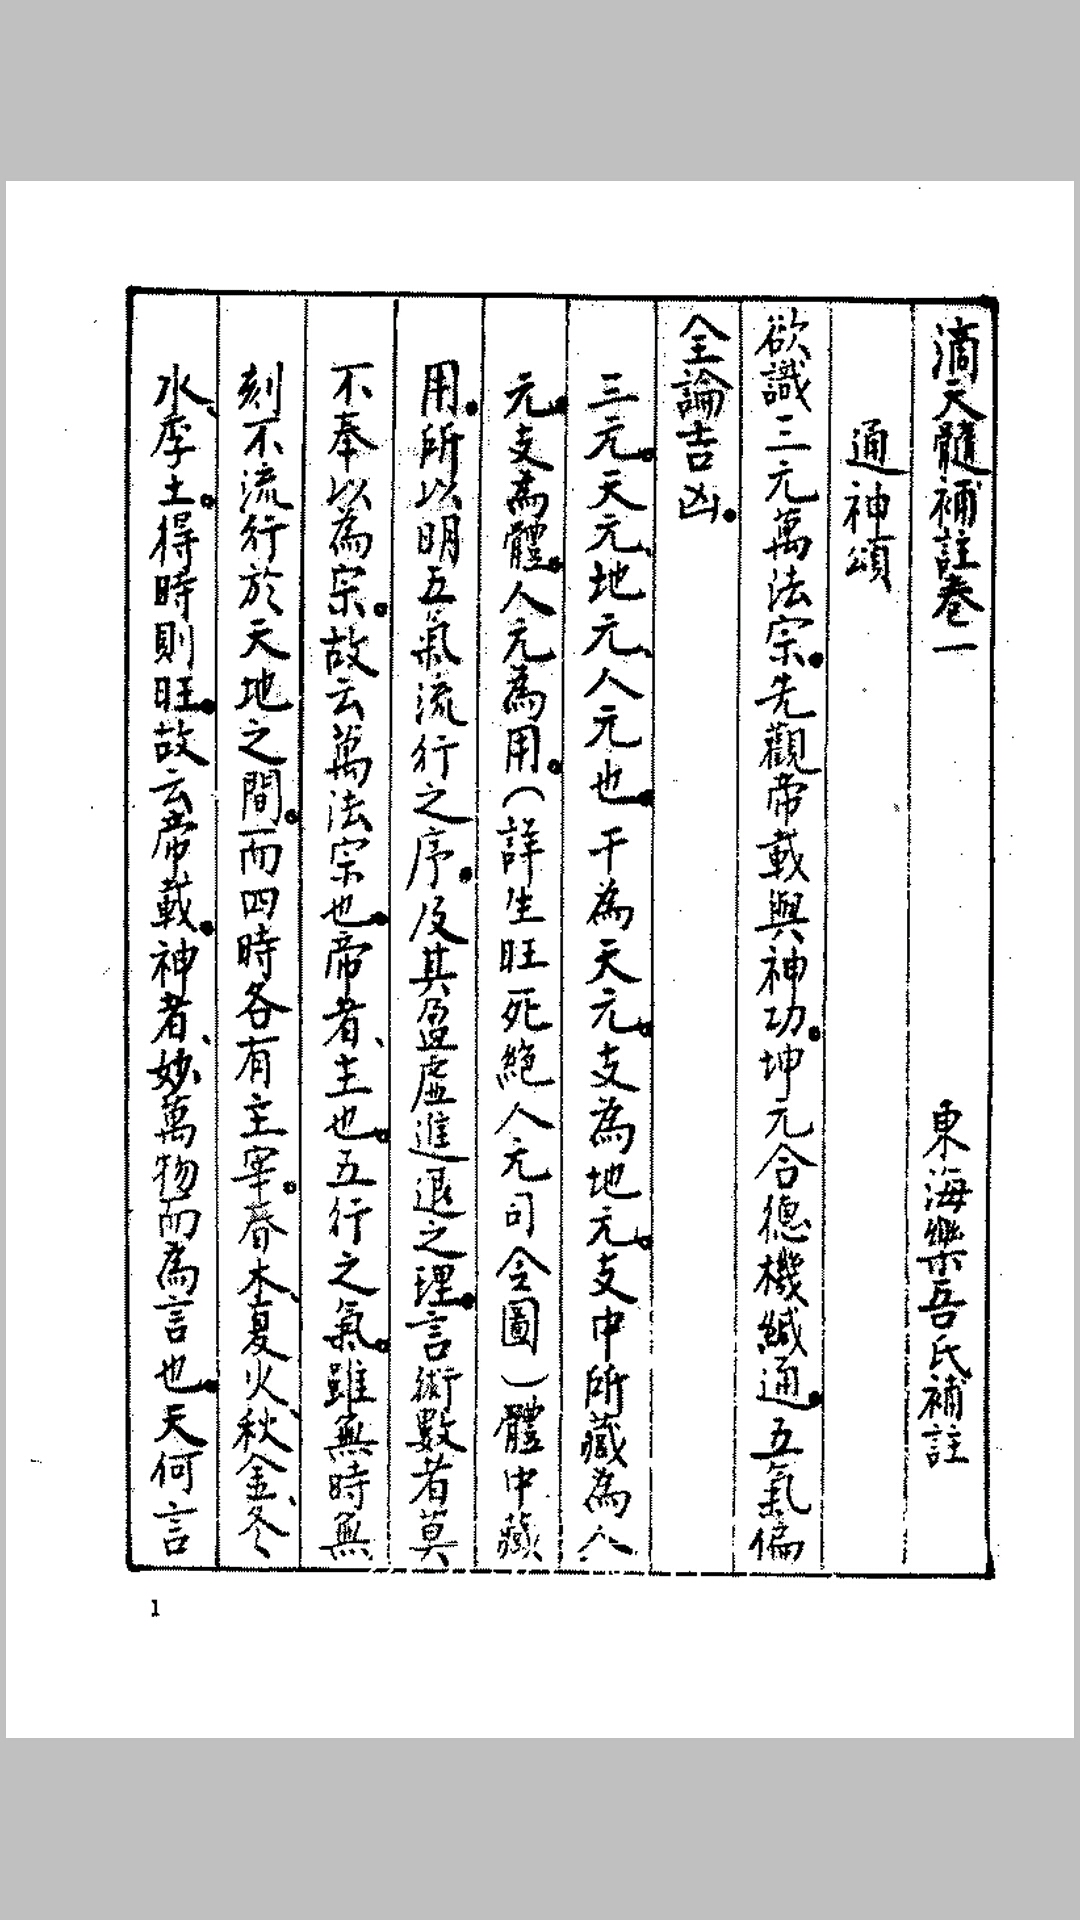 滴天髓補註卷一　　東海樂吾氏補註
通神頌
欲識三元萬法宗。先觀帝載與神功。坤元合德機緘通。五氣偏
全論吉凶。
三元。天元、地元、人元也。干為天元。支為地元。支中所藏為人
元。支為體。人元為用。(詳生旺死絕人元司令圖)體中藏
用。所以明五氣流行之序。及其盈虛進退之理。言術數者莫
不奉以為宗。故云萬法宗也。帝者、主也。五行之氣。雖無時無
刻不流行於天地之間。而四時各有主宰。春木、夏火、秋金、冬
水、季土。得時則旺。故云帝載。神者、妙萬物而為言也。天何言
1